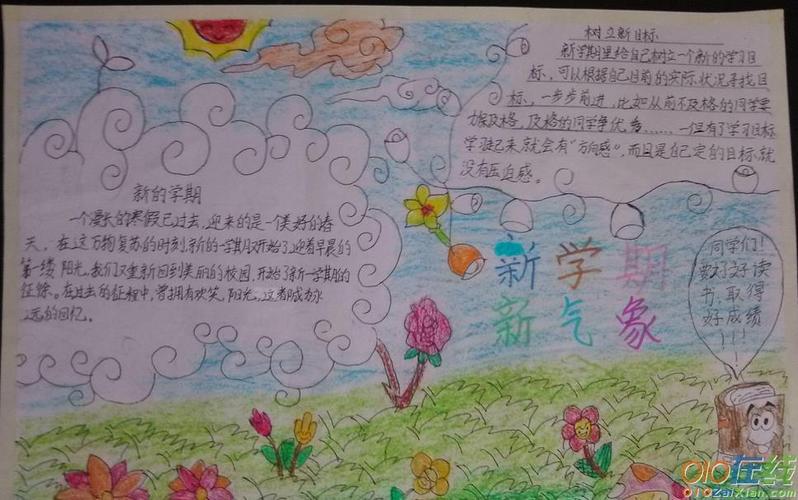 新的学期
一个漫长的寒假已过去,迎来的是一个美好的春
天,在这万物复苏的时刻,新的一学期又开始了,迎着早晨的
第一缕阳光,我们又重新回到美丽的校园,开始了新一学期的
征徐。在过去的征程中,曾拥有欢笑,阳光,这都成为永
远的回忆。
树立新目标
新学期里给自己树立一个新的学习目
标,可以根据自己目前的实际状况寻找目
标,一步步前进,比如从前不及格的同学要
力挨及格,及格的同学争优秀……一但有了学习目标
学习起来,就会有"方向感",而且是自己定的目标,就
没有压迫感。
新学期
新气象
同学们!
要好好读
书,取得
好成绩
!!!
010在线
010zaixian.com